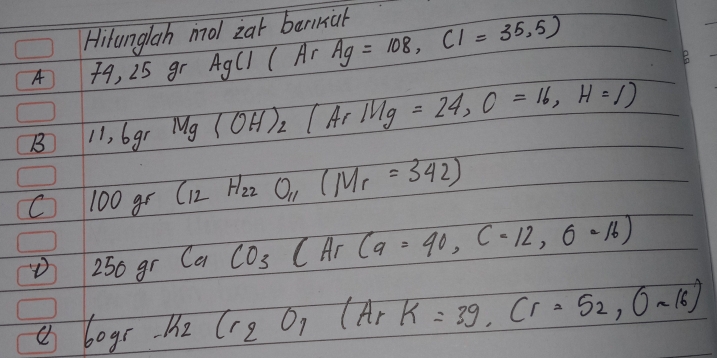 Hitunglah mol zat berikut
A 74,25 gr AgCl ( Ar Ag = 108, Cl = 35,5)
B 11,6gr Mg (OH)2 (Ar Mg = 24, O = 16, H = 1)
C 100 gr C12 H22 O11 (Mr = 342)
D 250 gr Ca CO3 ( Ar Ca = 40, C = 12, O = 16)
e 60gr K2 Cr2 O7 (Ar K = 39, Cr = 52, O = 16)